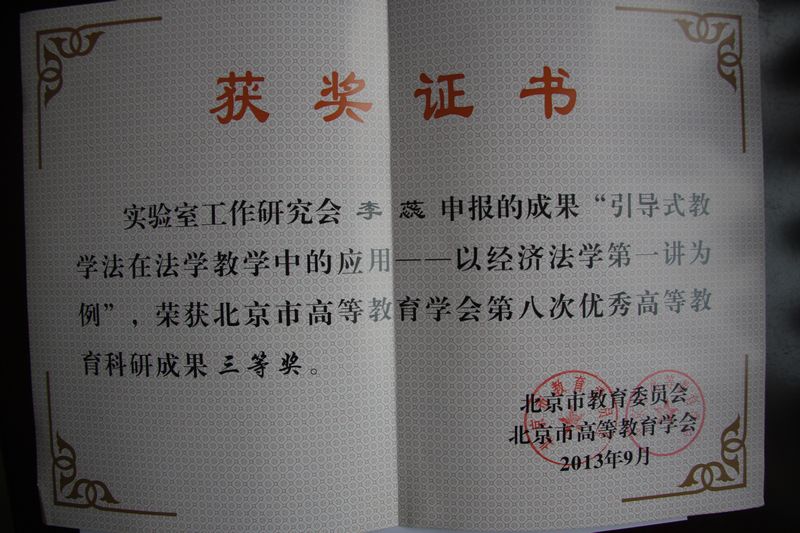 获奖证书
实验室工作研究会 李 蕊 申报的成果“引导式教
学法在法学教学中的应用——以经济法学第一讲为
例”，荣获北京市高等教育学会第八次优秀高等教
育科研成果 三等奖。
北京市教育委员会
北京市高等教育学会
2013年9月